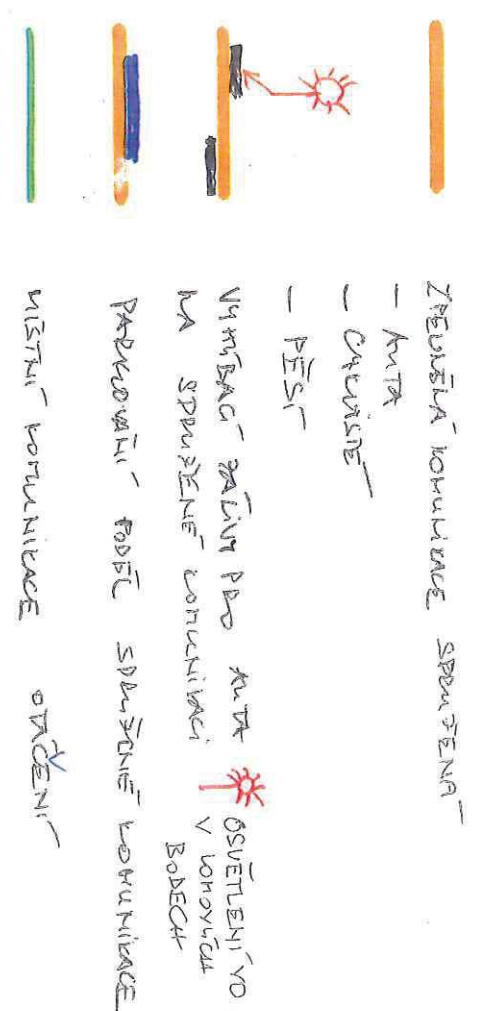 ZPEVNĚNÁ KOMUNIKACE SDRUŽENÁ
– AUTA
– CYKLISTÉ
– PĚŠÍ
VYHÝBACÍ ZÁLIVY PRO AUTA
NA SDRUŽENÉ KOMUNIKACI
OSVĚTLENÍ VO
V LOMOVÝCH
BODECH
PARKOVÁNÍ PODÉL SDRUŽENÉ KOMUNIKACE
MÍSTNÍ KOMUNIKACE OTÁČENÍ